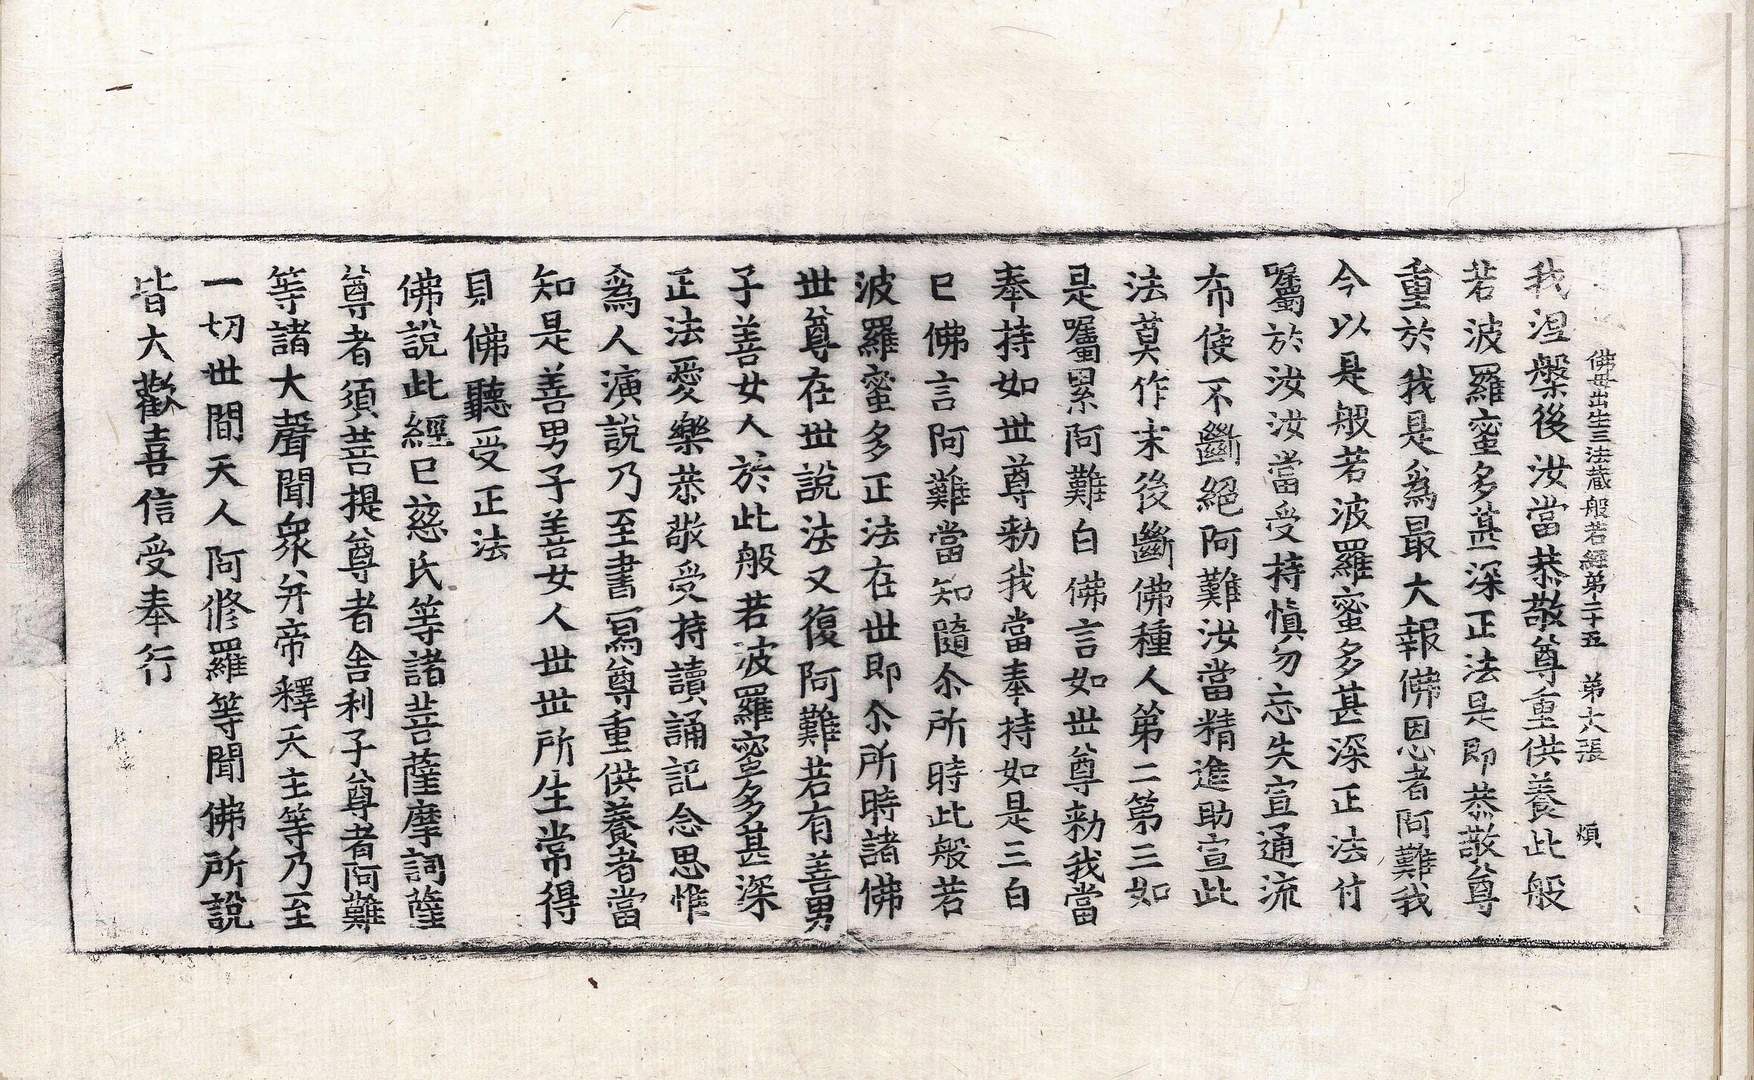 佛母出生三法藏般若經第二十五 第十八張 煩
我涅槃後汝當恭敬尊重供養此般
若波羅蜜多甚深正法是即恭敬尊
重於我是爲最大報佛恩者阿難我
今以是般若波羅蜜多甚深正法付
囑於汝汝當受持慎勿忘失宣通流
布使不斷絕阿難汝當精進助宣此
法莫作末後斷佛種人第二第三如
是囑累阿難白佛言如世尊勑我當
奉持如世尊勑我當奉持如是三白
已佛言阿難當知隨尒所時此般若
波羅蜜多正法在世即尒所時諸佛
世尊在世說法又復阿難若有善男
子善女人於此般若波羅蜜多甚深
正法愛樂恭敬受持讀誦記念思惟
爲人演說乃至書寫尊重供養者當
知是善男子善女人世世所生常得
見佛聽受正法
佛說此經已慈氏等諸菩薩摩訶薩
尊者須菩提尊者舍利子尊者阿難
等諸大聲聞衆并帝釋天主等乃至
一切世間天人阿修羅等聞佛所說
皆大歡喜信受奉行